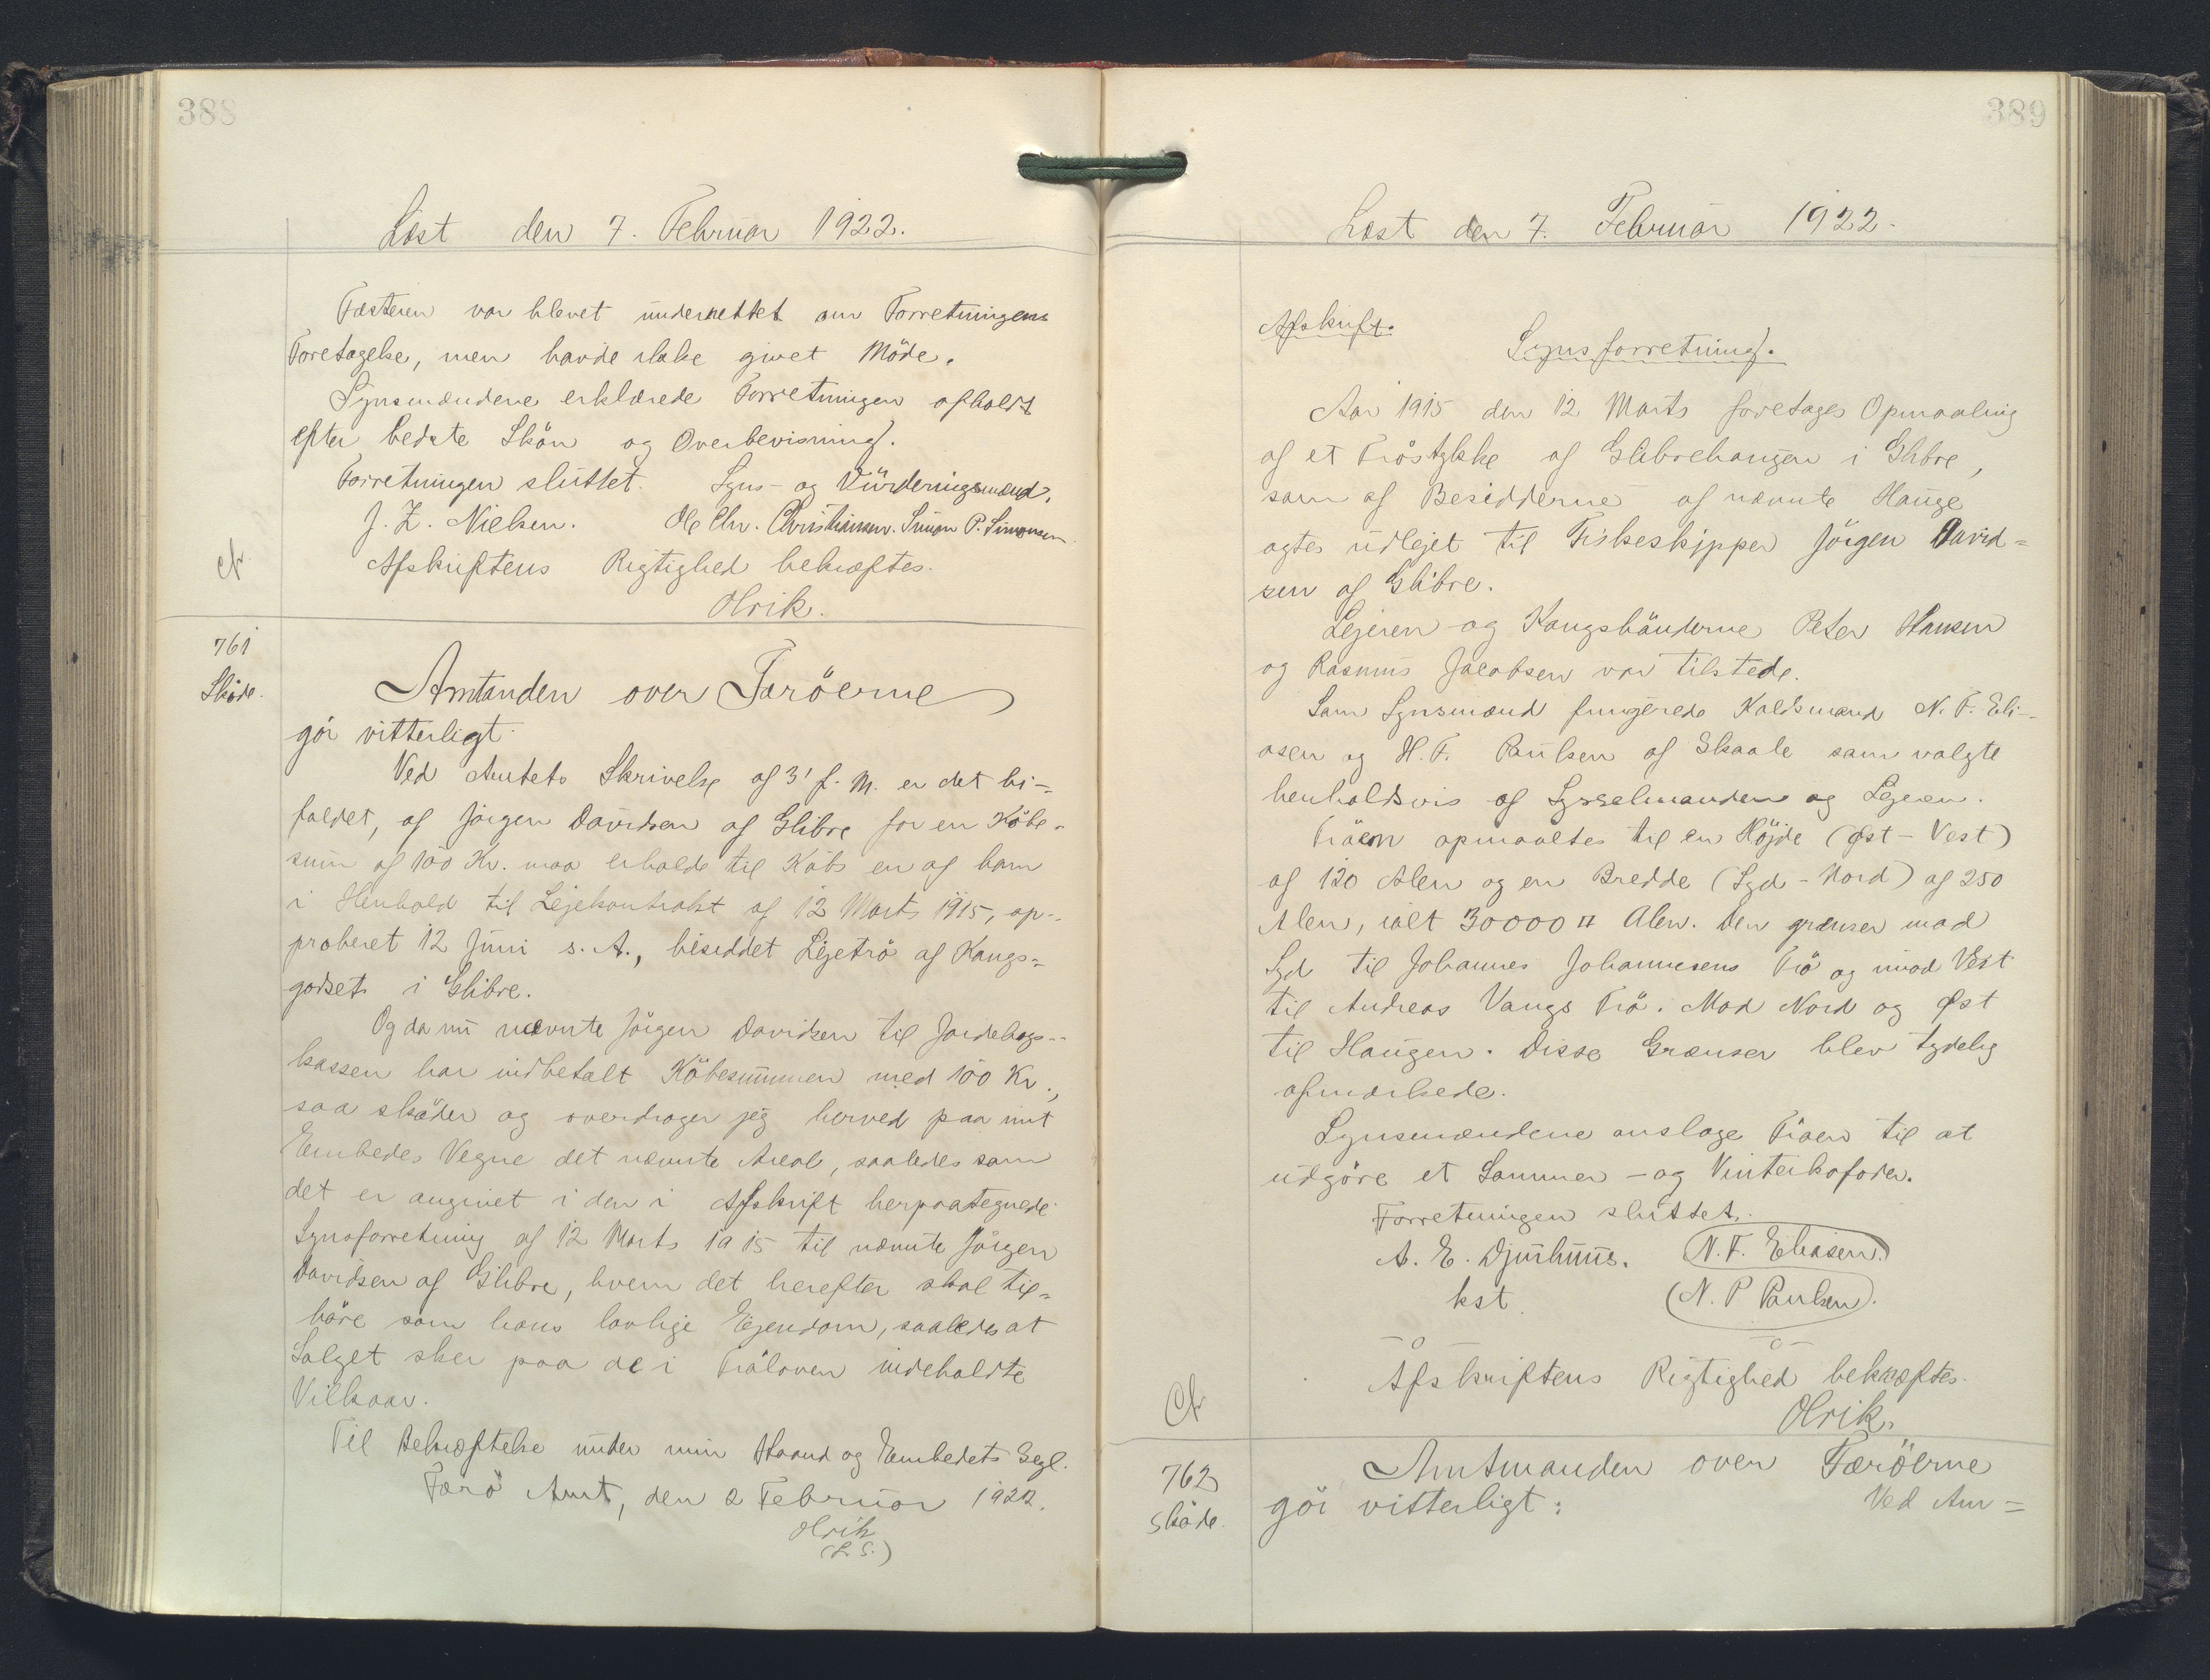 388
Læst den 7. Februar 1922.
Fæsteren var blevet underrettet om Forretningens
Foretagelse, men havde ikke givet Möde.
Synsmændene erklærede Forretningen afholdt
efter bedste Skön og Overbevisning.
Forretningen sluttet. Syns- og Vurderingsmænd,
J. Z. Nielsen. Ole Chr. Christiansen. Simon P. Simonsen.
Afskriftens Rigtighed bekræftes.
Olrik.
761
Sköde.
Amtmanden over Færöerne
gör vitterligt
Ved Amtets Skrivelse af 31 f. M. er det bi-
faldet, at Jörgen Davidsen af Glibre for en Köbe-
sum af 100 Kr. maa erholde til Köbs en af ham
i Henhold til Lejekontrakt af 12 Marts 1915, ap-
proberet 12 Juni s. A., besiddet Lejetrö af Kongs-
godset i Glibre.
Og da nu nævnte Jörgen Davidsen til Jordebogs-
kassen har indbetalt Köbesummen med 100 Kr.,
saa sköder og overdrager jeg herved paa mit
Embedes Vegne det nævnte Areal, saaledes som
det er angivet i den i Afskrift herpaategnede
Synsforretning af 12 Marts 1915 til nævnte Jörgen
Davidsen af Glibre, hvem det herefter skal til-
höre som hans lovlige Ejendom, saaledes at
Salget sker paa de i Tröloven indeholdte
Vilkaar.
Til Bekræftelse under min Haand og Embedets Segl.
Færö Amt, den 2 Februar 1922.
Olrik
(L. S.)
389
Læst den 7. Februar 1922.
Afskrift.
Synsforretning.
Aar 1915 den 12 Marts foretages Opmaaling
af et Tröstykke af Glibrehaugen i Glibre,
som af Besidderne af nævnte Hauge
agtes udlejet til Fiskeskipper Jörgen David-
sen af Glibre.
Lejeren og Kongsbönderne Peter Hansen
og Rasmus Jacobsen var tilstede.
Som Synsmænd fungerede Kaldsmand N. F. Eli-
asen og H. F. Paulsen af Skaale som valgte
henholdsvis af Sysselmanden og Lejeren.
Tröen opmaaltes til en Höjde (Øst-Vest)
af 120 Alen og en Bredde (Syd-Nord) af 250
Alen, ialt 30000 □ Alen. Den grænser mod
Syd til Johannes Johannesens Trö og mod Vest
til Andreas Vangs Trö. Mod Nord og Øst
til Haugen. Disse Grænser blev tydelig
afmærkede.
Synsmændene anslog Tröen til at
udgöre et Sommer- og Vinterkofoder.
Forretningen sluttet.
A. E. Djurhuus. N. F. Eliasen.
kst. N. P Paulsen.
Afskriftens Rigtighed bekræftes.
Olrik.
762
Sköde.
Amtmanden over Færöerne
gör vitterligt: Ved Am=